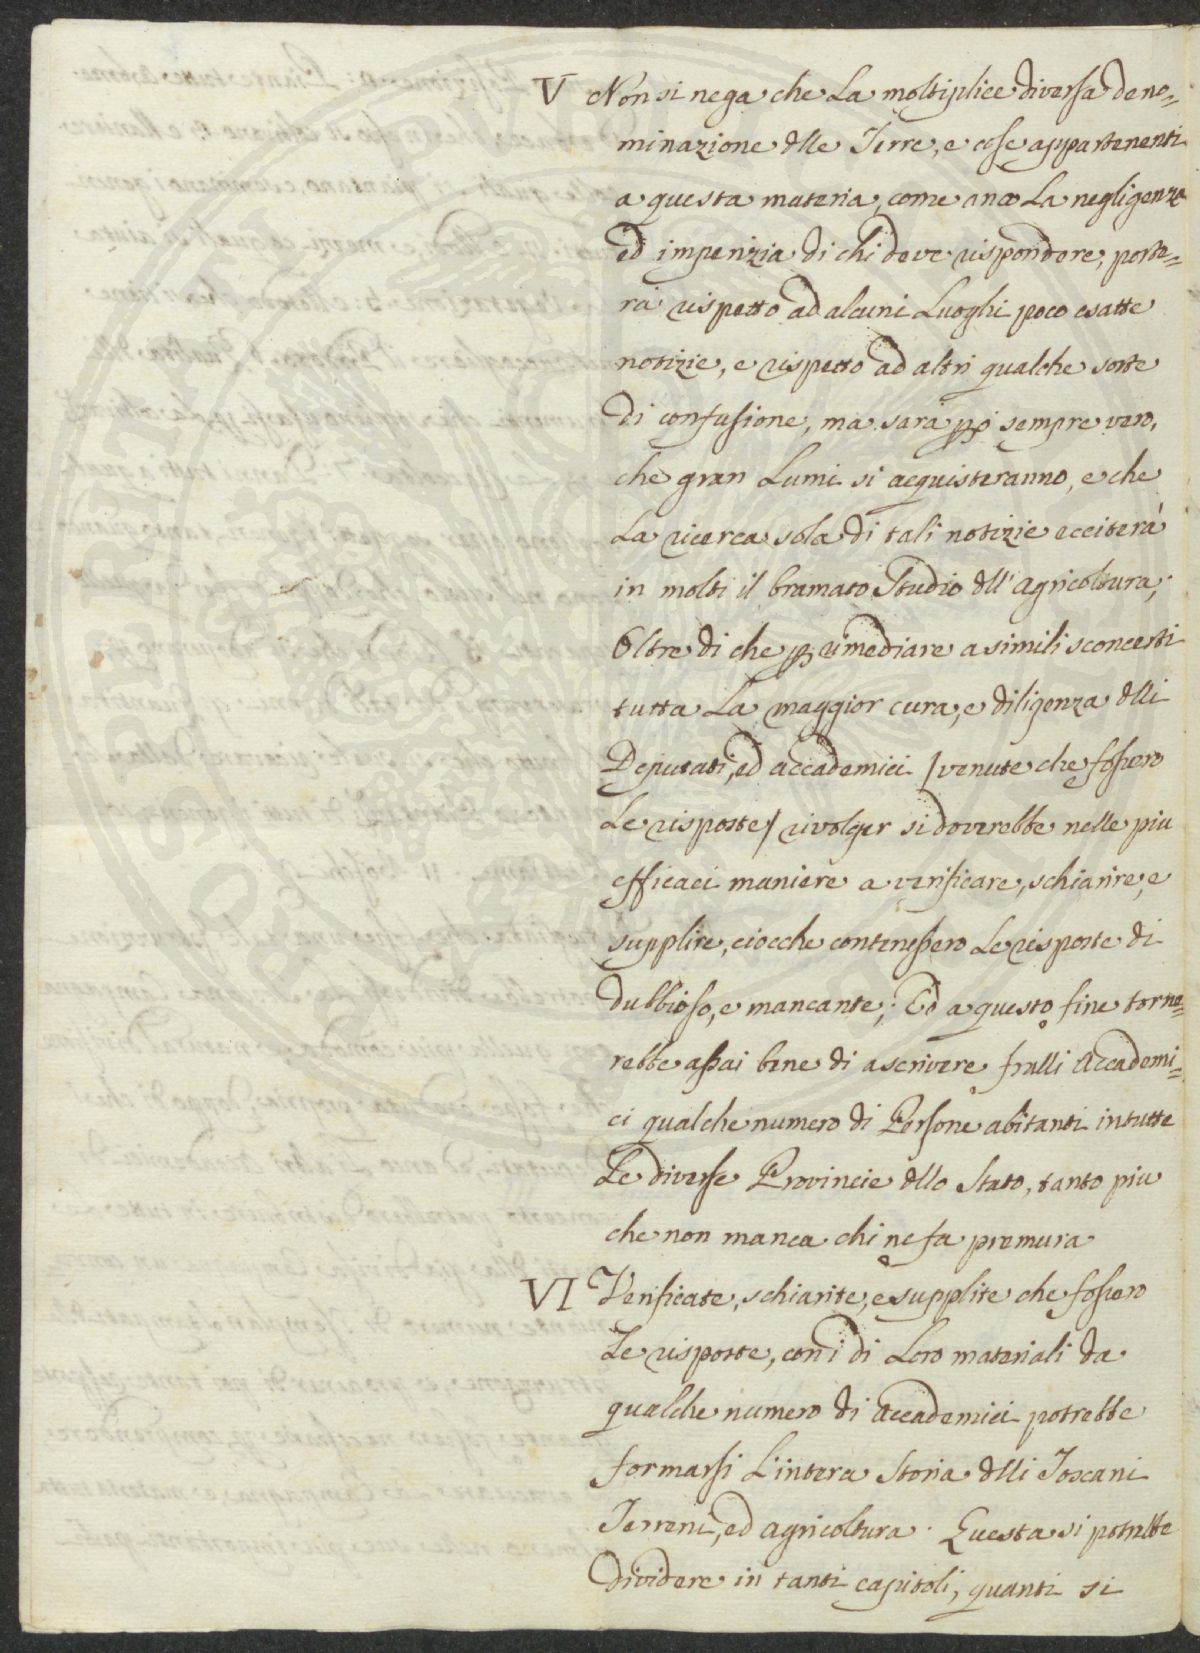 V Non si nega che La moltiplice diversa deno=
minazione dlle Terre, e cose appartenenti
a questa materia, come anco La negligenza
ed imperizia di chi deve rispondere, porte=
rà rispetto ad alcuni Luoghi poco esatte
notizie, e rispetto ad altri qualche sorte
di confusione, ma sarà però sempre vero,
che gran Lumi si acquisteranno, e che
La ricerca sola di tali notizie ecciterà
in molti il bramato Studio dll' Agricoltura;
Oltre di che p rimediare a simili sconcerti
tutta La maggior cura, e diligenza dlli
Deputati, ed Accademici / venute che fossero
Le risposte / rivolger si doverebbe nelle piu
efficaci maniere a verificare, schiarire, e
supplire, ciocche contenessero Le risposte di
dubbioso, e mancante; Ed a questo fine torne=
rebbe assai bene di ascrivere fralli Accademi=
ci qualche numero di Persone abitanti in tutte
Le diverse Provincie dllo Stato, tanto piu
che non manca chi ne fa premura
VI Verificate, schiarite, e supplite che fossero
Le risposte, con i di Loro materiali da
qualche numero di Accademici potrebbe
formarsi L'intera Storia dlli Toscani
Terreni, ed Agricoltura. Questa si potrebbe
dividere in tanti capitoli, quanti si